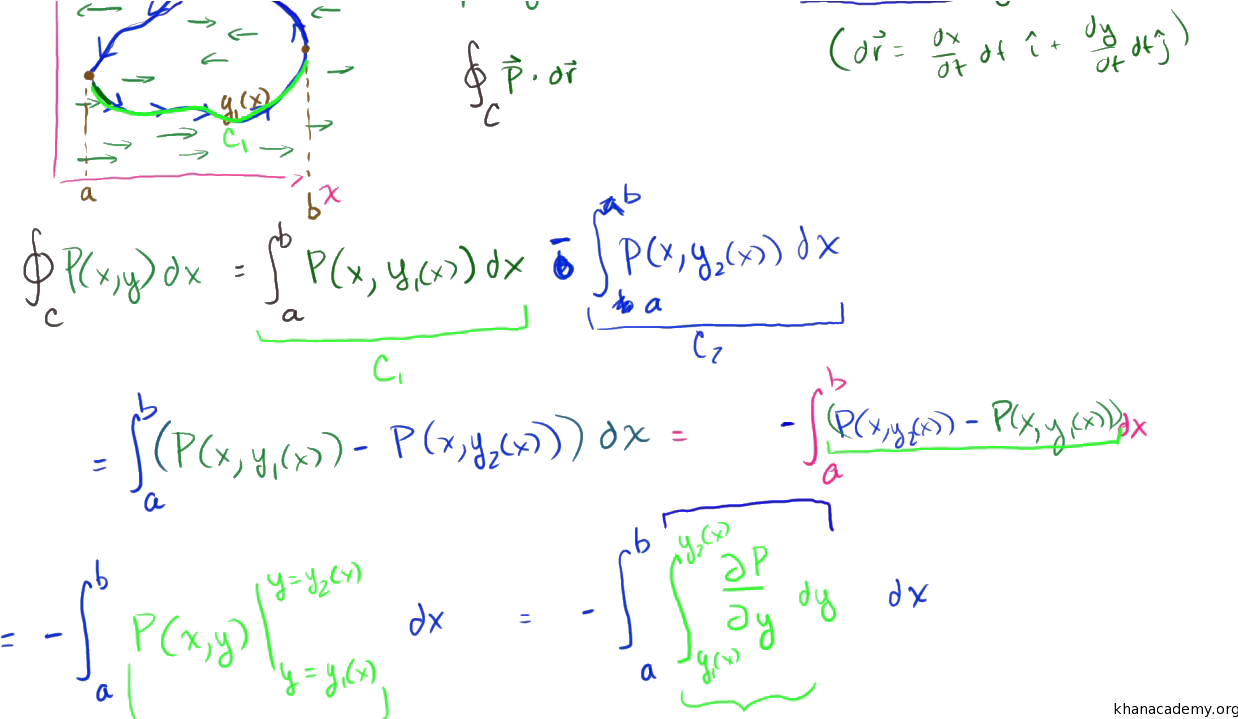 (dr⃗ = dx/dt dt î + dy/dt dt ĵ)
∮_C P⃗ · dr⃗
y₁(x)
C₁
a
b x
∮_C P(x,y) dx = ∫_a^b P(x, y₁(x)) dx - ∫_a^b P(x, y₂(x)) dx
C₁ C₂
= ∫_a^b (P(x, y₁(x)) - P(x, y₂(x))) dx = - ∫_a^b (P(x, y₂(x)) - P(x, y₁(x))) dx
= - ∫_a^b P(x,y) |_{y = y₁(x)}^{y = y₂(x)} dx = - ∫_a^b ∫_{y₁(x)}^{y₂(x)} ∂P/∂y dy dx
khanacademy.org